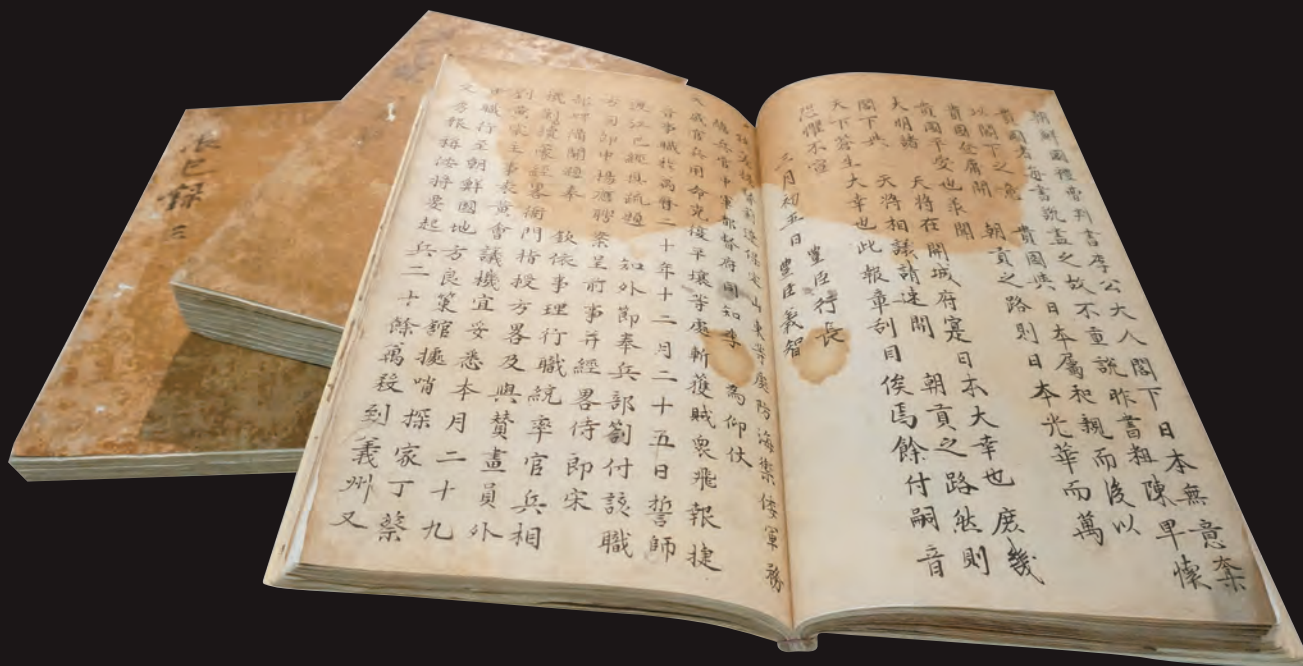 朝鮮國禮曹判書李公大人閣下日本無意棄
貴國者每書說盡之故不重說昨書粗陳早懷
以閣下之意 貴國與日本屬和親而後以
貴國 聞 朝貢之路則日本光華而萬
貴國平安也承聞
大明諸 天將在開城府寔日本大幸也庶幾
閣下共 天將相議請速開 朝貢之路然則
天下蒼生大幸也此報章刮目俟焉餘付嗣音
恐懼不宣
三月初五日 豊臣行長
豊臣義智
提督薊遼保定山東等處防海禦倭軍務
總兵官中軍都督府同知李 為仰仗
天威官兵用命克復平壤等處斬獲賊衆飛報捷
音事職於萬曆二十年十二月二十五日誓師
渡江已經具疏題 知外節奉兵部劄付該職
方司郎中楊應聘案呈前事并經畧侍郎宋
部咨備開題奉 欽依事理行職統率官兵相
機剿續蒙經畧衙門指授方畧及與贊畫員外
劉黃裳主事袁黃會議機宜妥悉本月二十九
日職行至朝鮮國地方良策舘據哨探家丁蔡
文秀報稱倭將要起兵二十餘萬殺到義州又
辰巳録 三